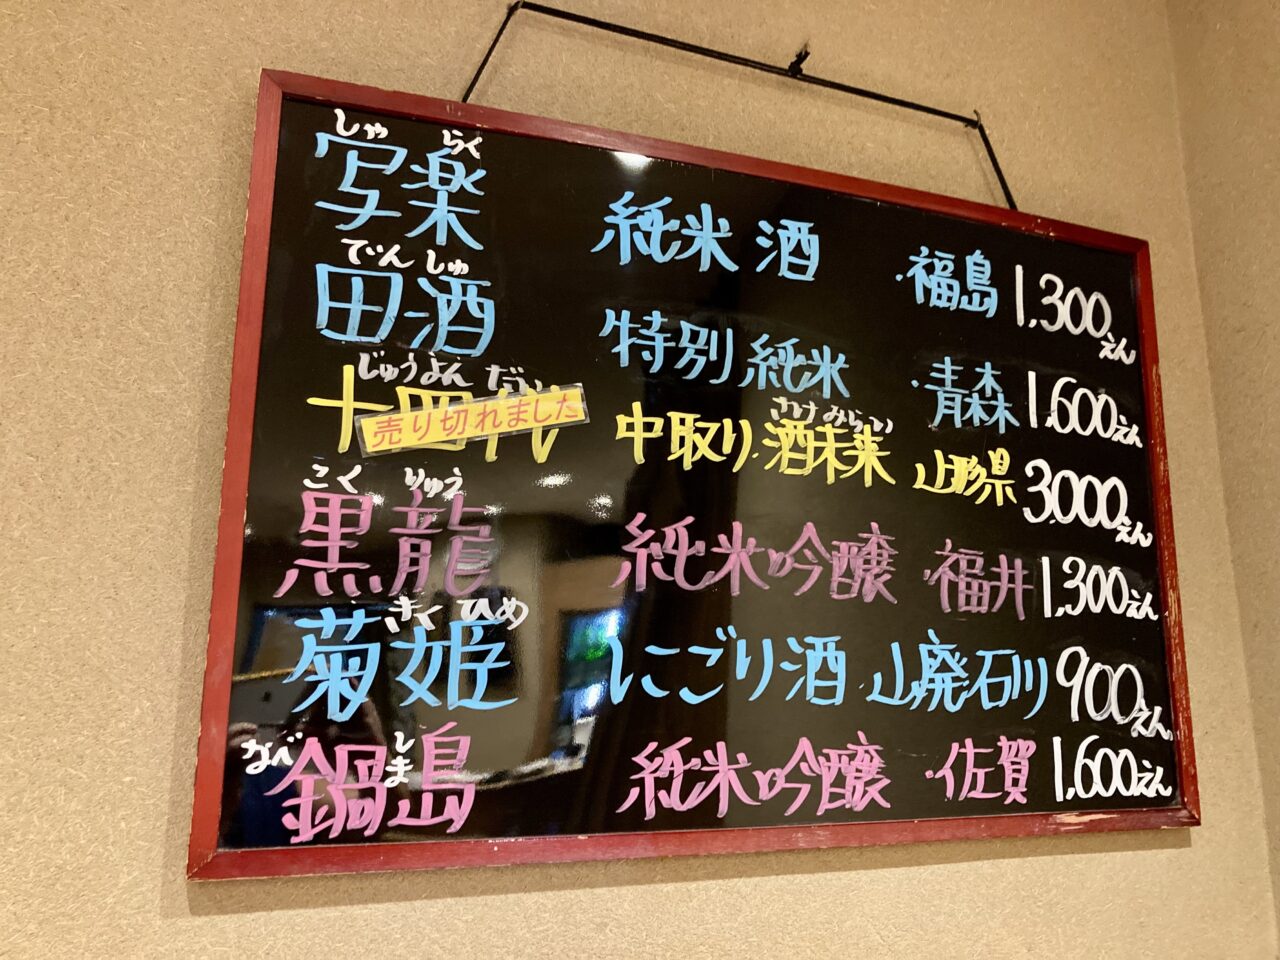 しゃ らく
写楽 純米酒 ・福島 1,300えん
でん しゅ
田酒 特別純米 ・青森 1,600えん
じゅうよん だい さけ みらい
十四代 中取り 酒未来 山形県 3,000えん
売り切れました
こく りゅう
黒龍 純米吟醸 ・福井 1,300えん
きく ひめ
菊姫 にごり酒 山廃 石川 900えん
なべ しま
鍋島 純米吟醸 ・佐賀 1,600えん